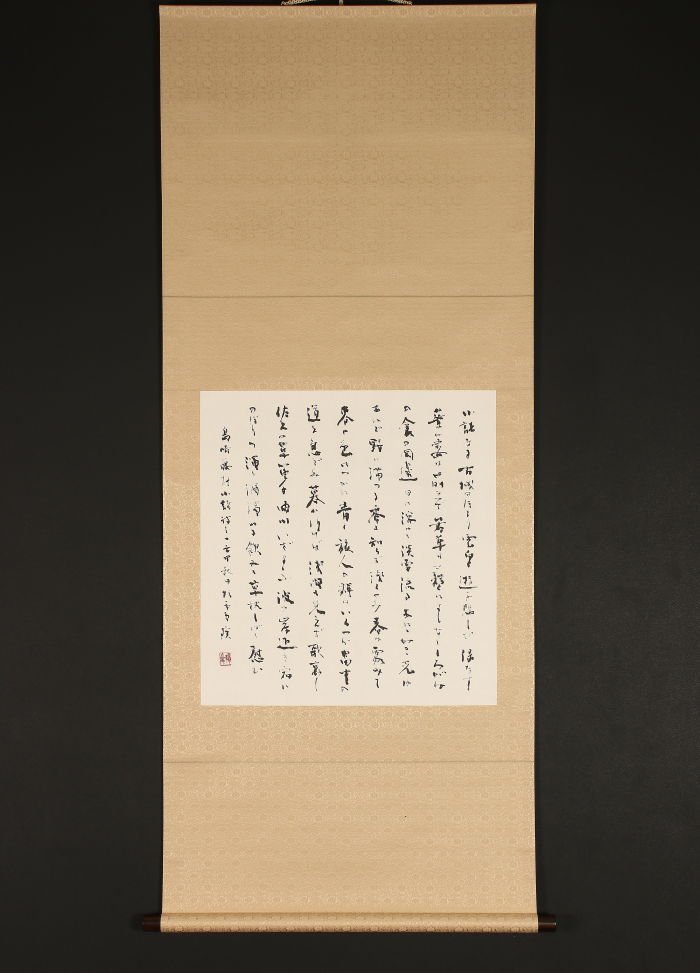 小諸なる古城のほとり雲白く遊子悲しむ緑なす
蔞は萌えず若草も藉くによしなししろがね
の衾の岡邊日に溶けて淡雪流るあたたかき光は
あれど野に満つる香も知らず浅くのみ春は霞みて
麦の色はつかに青し旅人の群はいくつか畠中の
道を急ぎぬ暮れ行けば浅間も見えず歌哀し
佐久の草笛千曲川いざよふ波の岸近き宿に
のぼりつ濁り酒濁れる飲みて草枕しばし慰む
島崎藤村小諸詩 壬申秋日